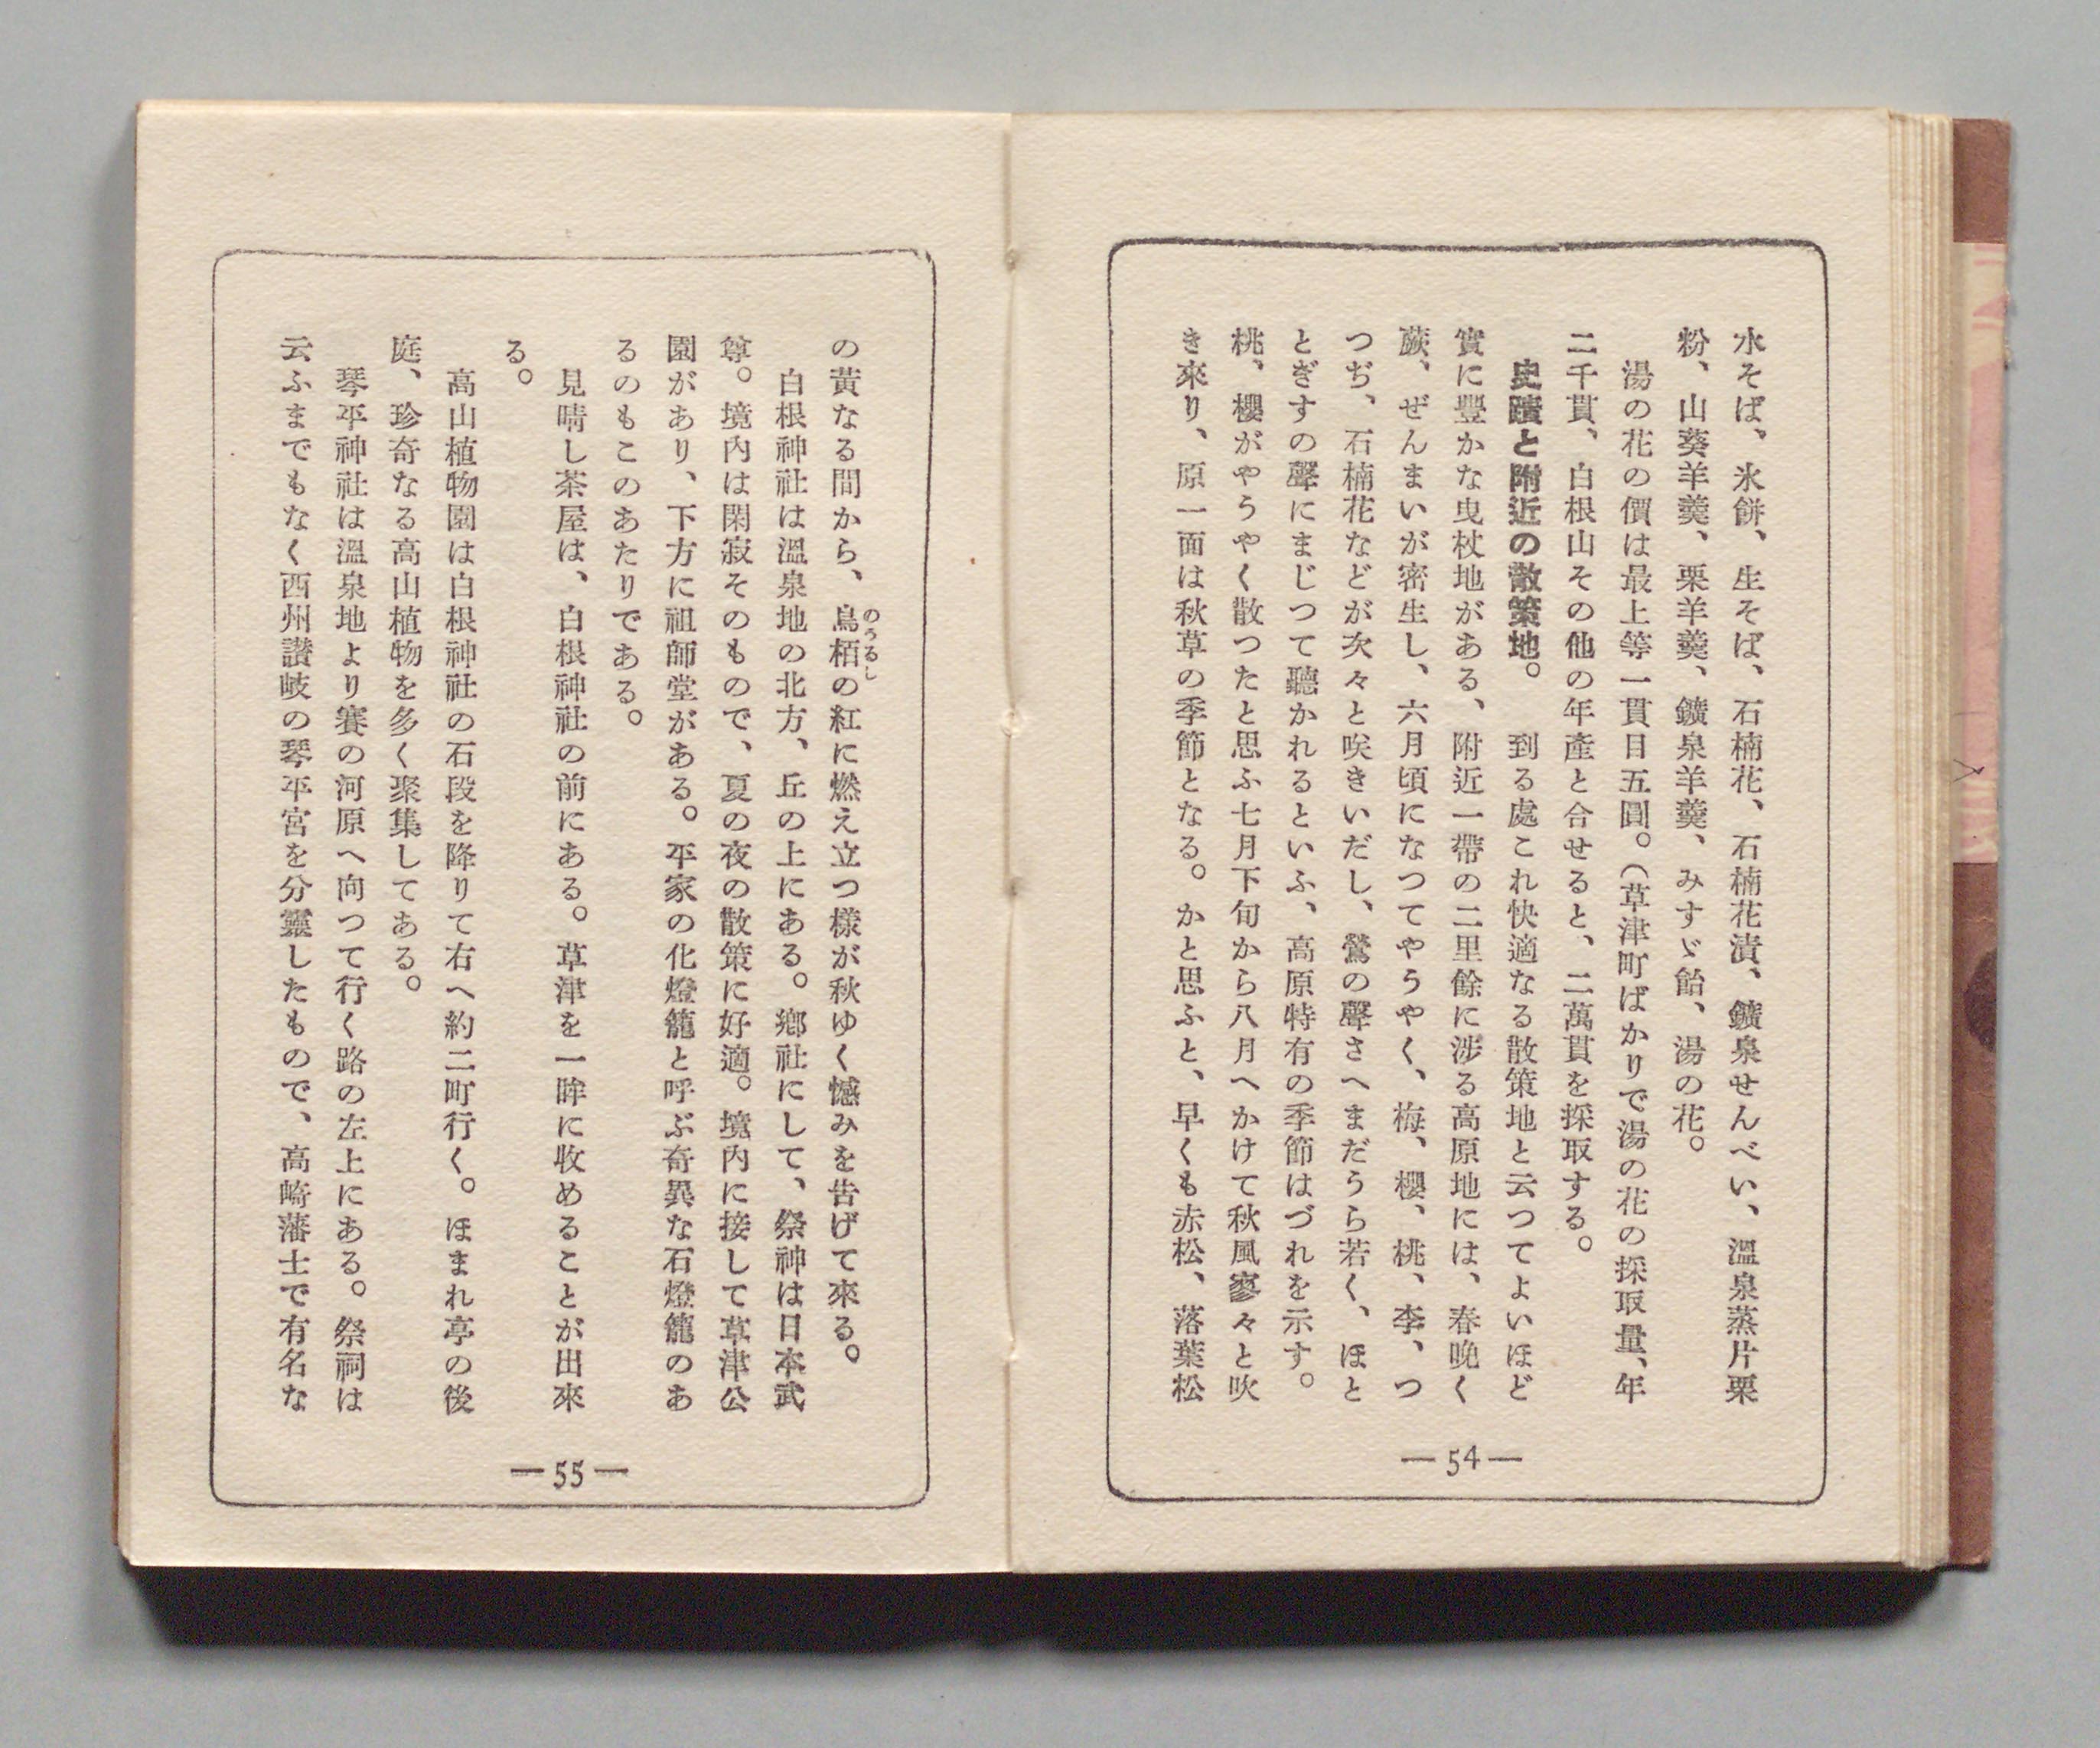 水そば、氷餅、生そば、石楠花、石楠花漬、鑛泉せんべい、溫泉蒸片栗
粉、山葵羊羹、栗羊羹、鑛泉羊羹、みすゞ飴、湯の花。
湯の花の價は最上等一貫目五圓。(草津町ばかりで湯の花の採取量、年
二千貫、白根山その他の年產と合せると、二萬貫を採取する。
史蹟と附近の散策地。　到る處これ快適なる散策地と云つてよいほど
實に豐かな曳杖地がある、附近一帶の二里餘に涉る高原地には、春晩く
蕨、ぜんまいが密生し、六月頃になつてやうやく、梅、櫻、桃、李、つ
つぢ、石楠花などが次々と咲きいだし、鶯の聲さへまだうら若く、ほと
とぎすの聲にまじつて聽かれるといふ、高原特有の季節はづれを示す。
桃、櫻がやうやく散つたと思ふ七月下旬から八月へかけて秋風寥々と吹
き來り、原一面は秋草の季節となる。かと思ふと、早くも赤松、落葉松
—54—
の黃なる間から、烏栢の紅に燃え立つ樣が秋ゆく憾みを吿げて來る。
のうるし
白根神社は溫泉地の北方、丘の上にある。鄕社にして、祭神は日本武
尊。境內は閑寂そのもので、夏の夜の散策に好適。境內に接して草津公
園があり、下方に祖師堂がある。平家の化燈籠と呼ぶ奇異な石燈籠のあ
るのもこのあたりである。
見晴し茶屋は、白根神社の前にある。草津を一眸に收めることが出來
る。
高山植物園は白根神社の石段を降りて右へ約二町行く。ほまれ亭の後
庭、珍奇なる高山植物を多く聚集してある。
琴平神社は溫泉地より賽の河原へ向つて行く路の左上にある。祭祠は
云ふまでもなく西州讃岐の琴平宮を分靈したもので、高崎藩士で有名な
—55—